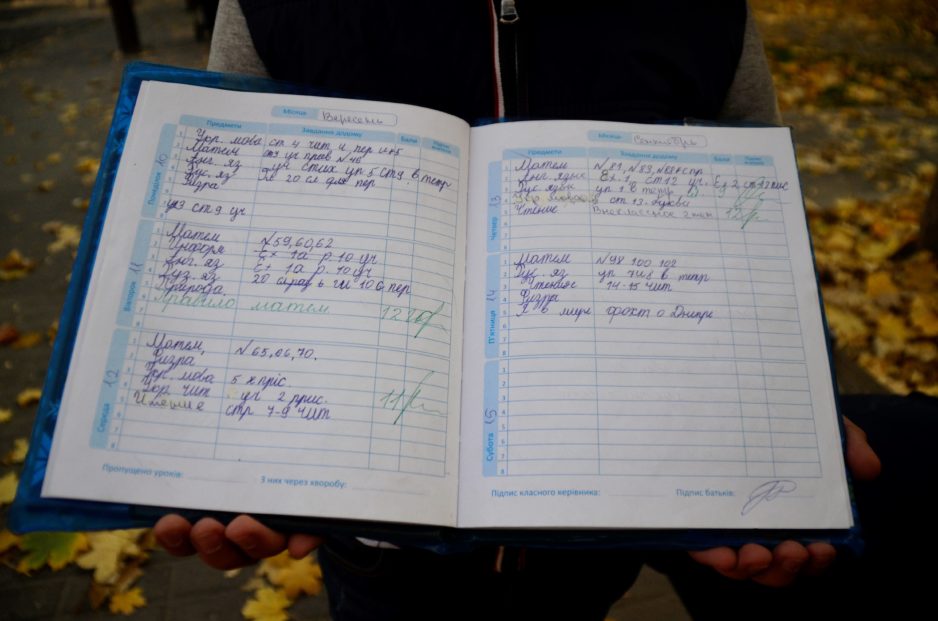 Місяць Вересень
Предмети Завдання додому Бали Підпис вчителя
Понеділок 10
1 Укр. мова ст 4 чит
2 Матем
3 Анг. яз уч стих уп 5 ст 9 в тетр
4 Рус. яз
5 Физра
уп 3 ст 9 уч
Вівторок 11
Матем №59,60,62
Информ
Анг. яз 1а р 10 уч
Руз. яз
Природа
Правило матем 12
Середа 12
Матем, №65,66,70.
Физра
Укр. мова 5 х пріс
Укр. чит уч 2 прис.
Чтение стр 7-9 чит 11
Пропущено уроків:
З них через хворобу:
Місяць Сентябрь
Предмети Завдання додому Бали Підпис вчителя
Четвер 13
Матем №81, №83, №88
Анг. язык Ex. 1, ст 12 уч. Ex 2 ст 12 пис
Рус язык уп 1 в тетр
Укр мова ст 13. буква
Чтение Внеклассное чтен 12
П'ятниця 14
Матем №98 100, 102
Рус яз уп 7 в тетр
Чтение 14-15 чит
Физра
Я в мире о Днепре
Субота 15
Підпис класного керівника:
Підпис батьків: